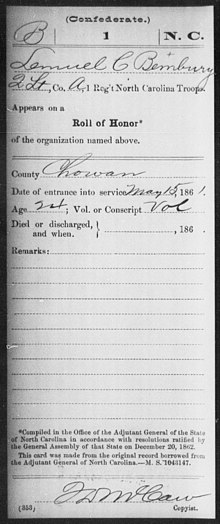 (Confederate.)
B | 1 | N. C.
Lemuel C Bembury
2 Lt, Co. A, 1 Reg't North Carolina Troops.
Appears on a
Roll of Honor*
of the organization named above.
County Chowan
Date of entrance into service May 15, 1861.
Age 24; Vol. or Conscript Vol
Died or discharged, and when. } , 186 .
Remarks:
*Compiled in the Office of the Adjutant General of the State
of North Carolina in accordance with resolutions ratified by
the General Assembly of that State on December 20, 1862.
This card was made from the original record borrowed
from the Adjutant General of North Carolina.—M. S. 1043147.
J D McCaw
(353) Copyist.